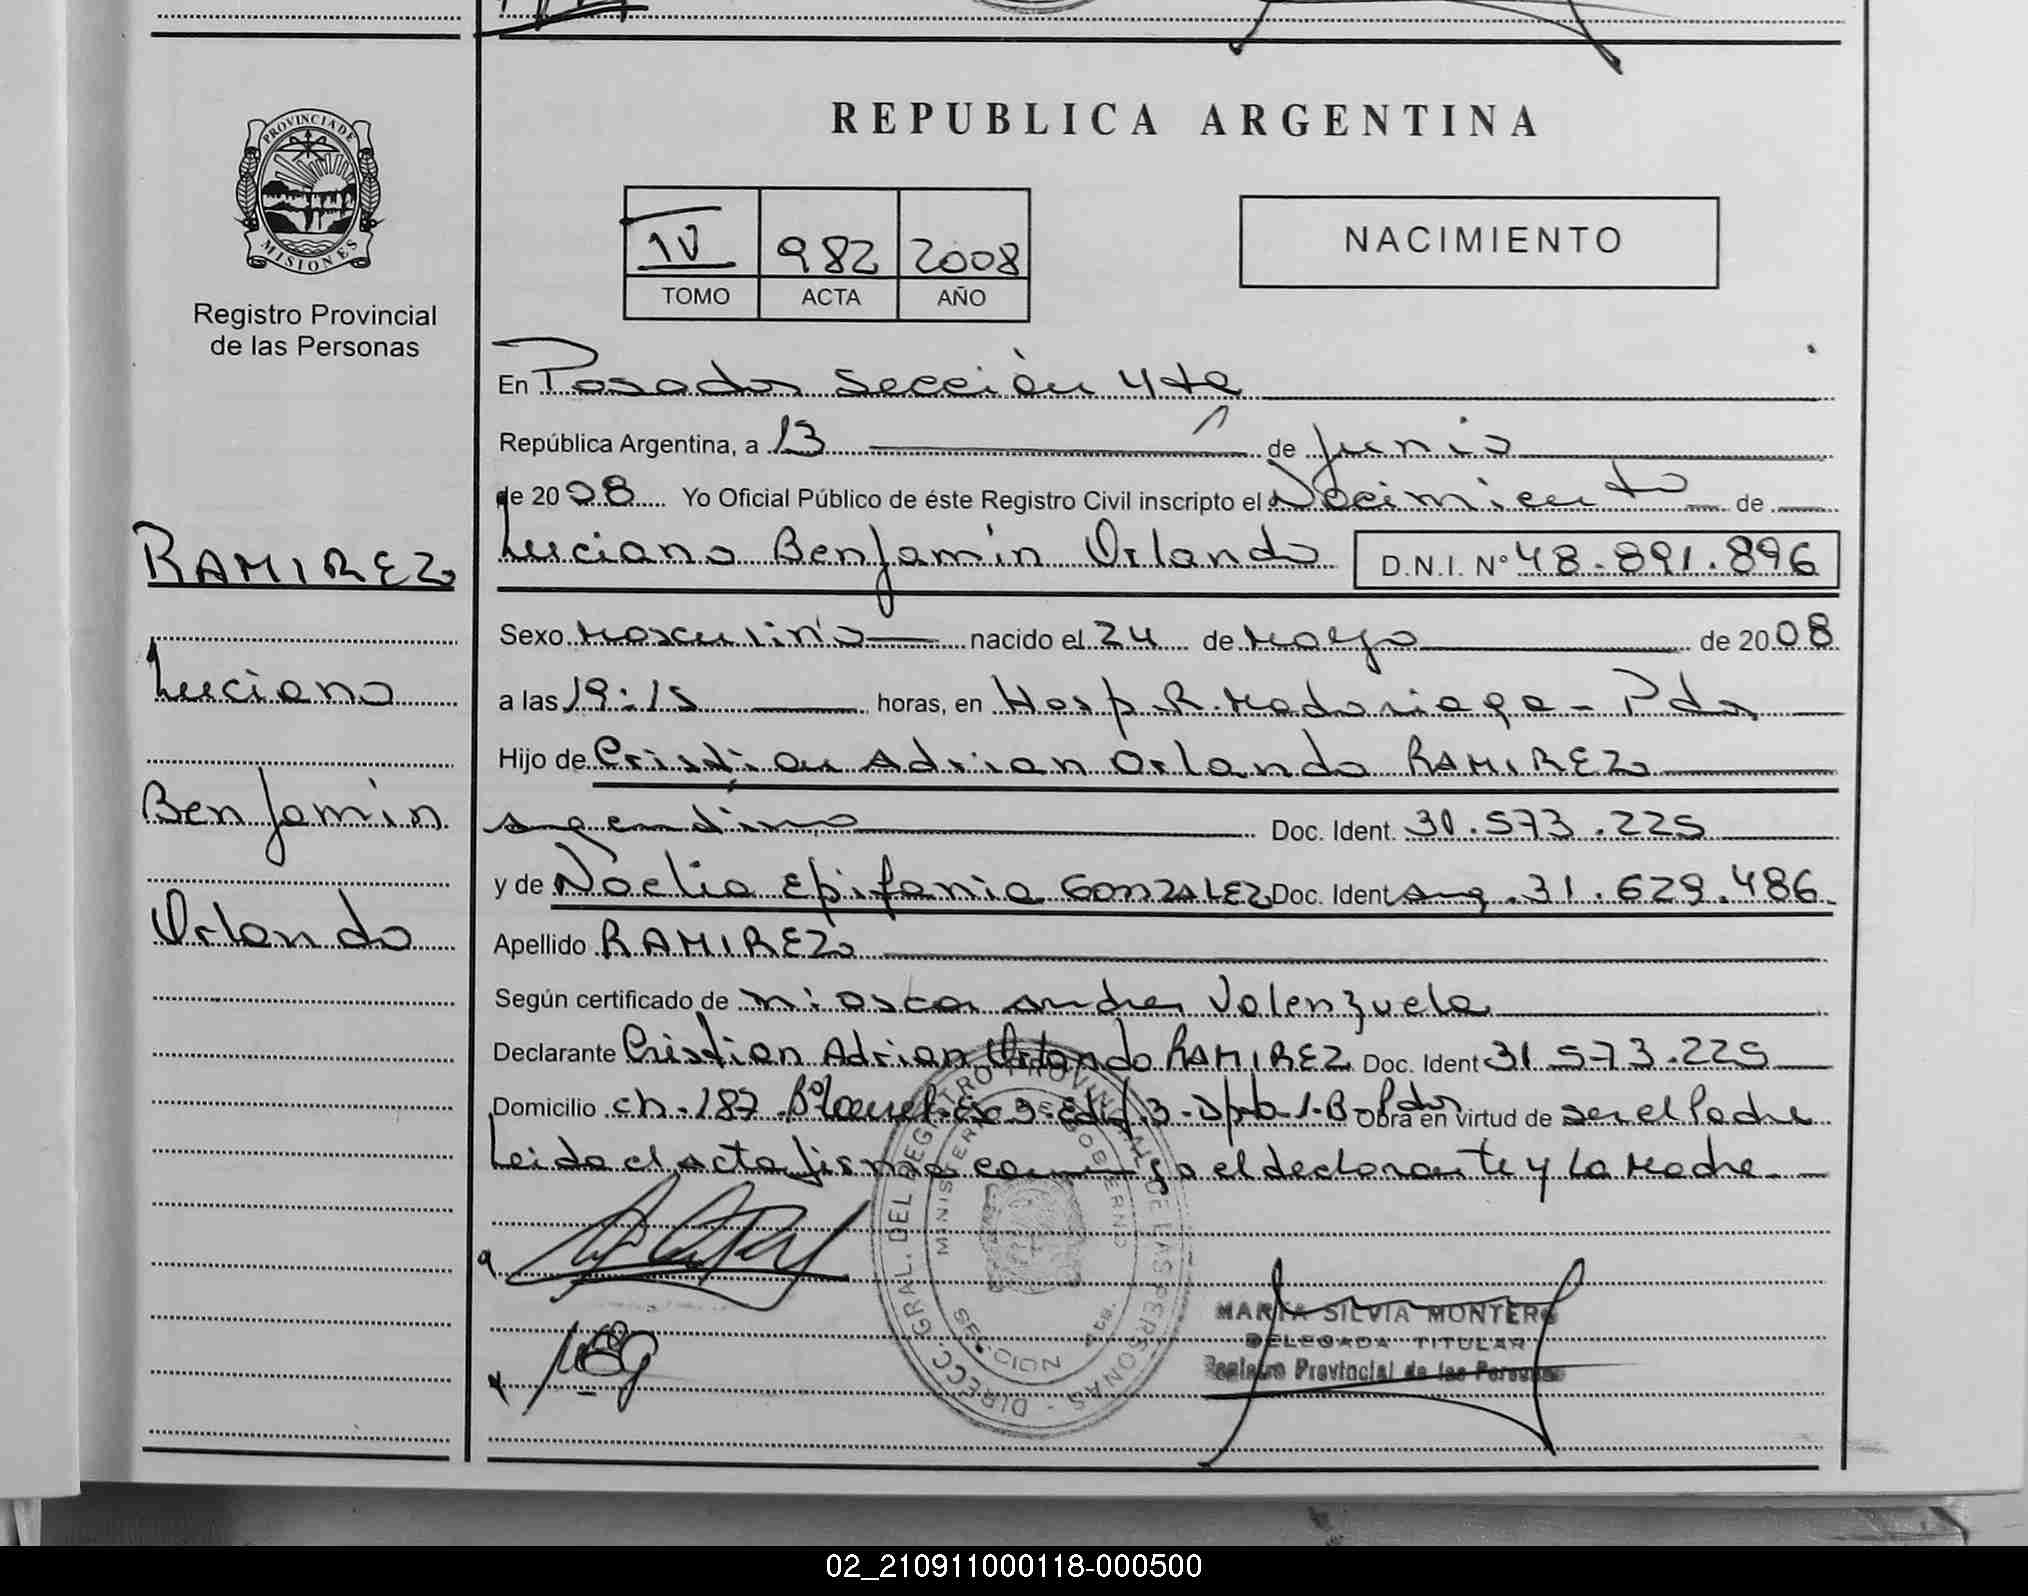 PROVINCIA DE
MISIONES
Registro Provincial
de las Personas
RAMIREZ
Luciano
Benjamín
Orlando
REPUBLICA ARGENTINA
IV 982 2008
TOMO ACTA AÑO
NACIMIENTO
En Posadas Sección 4ta
República Argentina, a 13 de Junio
de 2008 Yo Oficial Público de éste Registro Civil inscripto el Nacimiento de
Luciano Benjamín Orlando D.N.I. Nº 48.891.896
Sexo Masculino nacido el 24 de Mayo de 2008
a las 19:15 horas, en Hosp. R. Madariaga - Pdas
Hijo de Cristian Adrian Orlando RAMIREZ
argentino Doc. Ident. 31.573.225
y de Noelia Epifania GONZALEZ Doc. Ident arg. 31.629.486
Apellido RAMIREZ
Según certificado de Andrea Valenzuela
Declarante Cristian Adrian Orlando RAMIREZ Doc. Ident 31.573.225
Domicilio ch. 187 Esc 3 - Edif. 3 - Dpto 1 - Pdas Obra en virtud de ser el Padre
Leida el acta firma conmigo el declarante y la Madre
DIRECC. GRAL. DEL REGISTRO PROVINCIAL DE LAS PERSONAS
MINISTERIO DE GOBIERNO
SECCION 4ta.
MARTA SILVIA MONTERO
DELEGADA TITULAR
Registro Provincial de las Personas
02_210911000118-000500